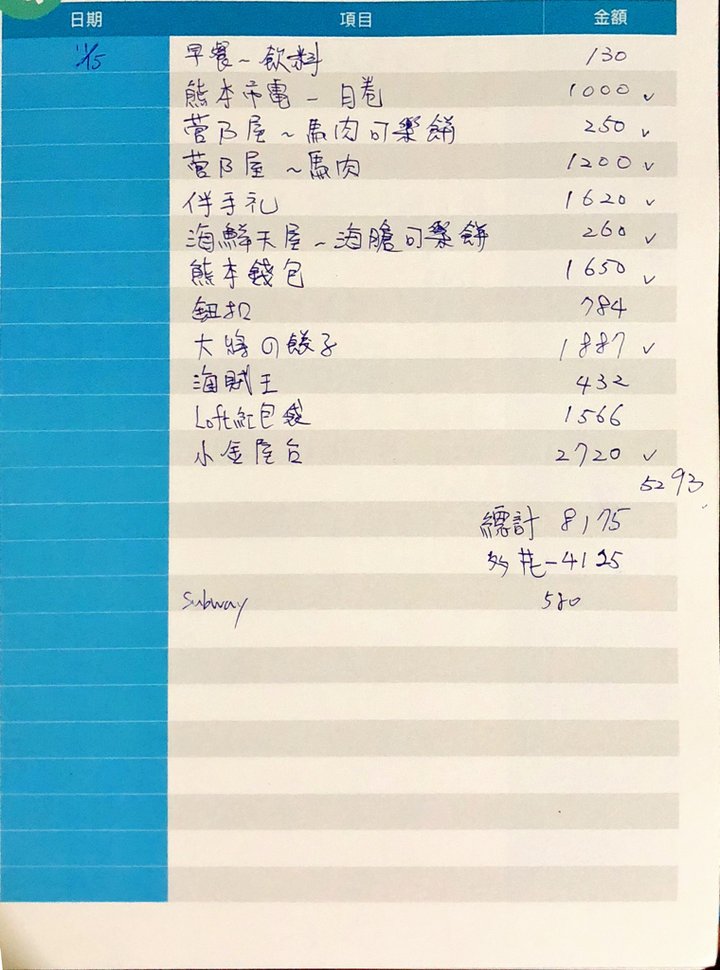 日期 項目 金額
11/15 早餐~飲料 130
熊本市電 - 自卷 1000 ✓
菅乃屋~馬肉可樂餅 250 ✓
菅乃屋~馬肉 1200 ✓
伴手礼 1620 ✓
海鮮天屋~海膽可樂餅 260 ✓
熊本錢包 1650 ✓
鈕扣 784
大將の餃子 1887 ✓
海賊王 432
Loft紅包袋 1566
小金屋台 2720 ✓
5293
總計 8175
花-4125
subway 580